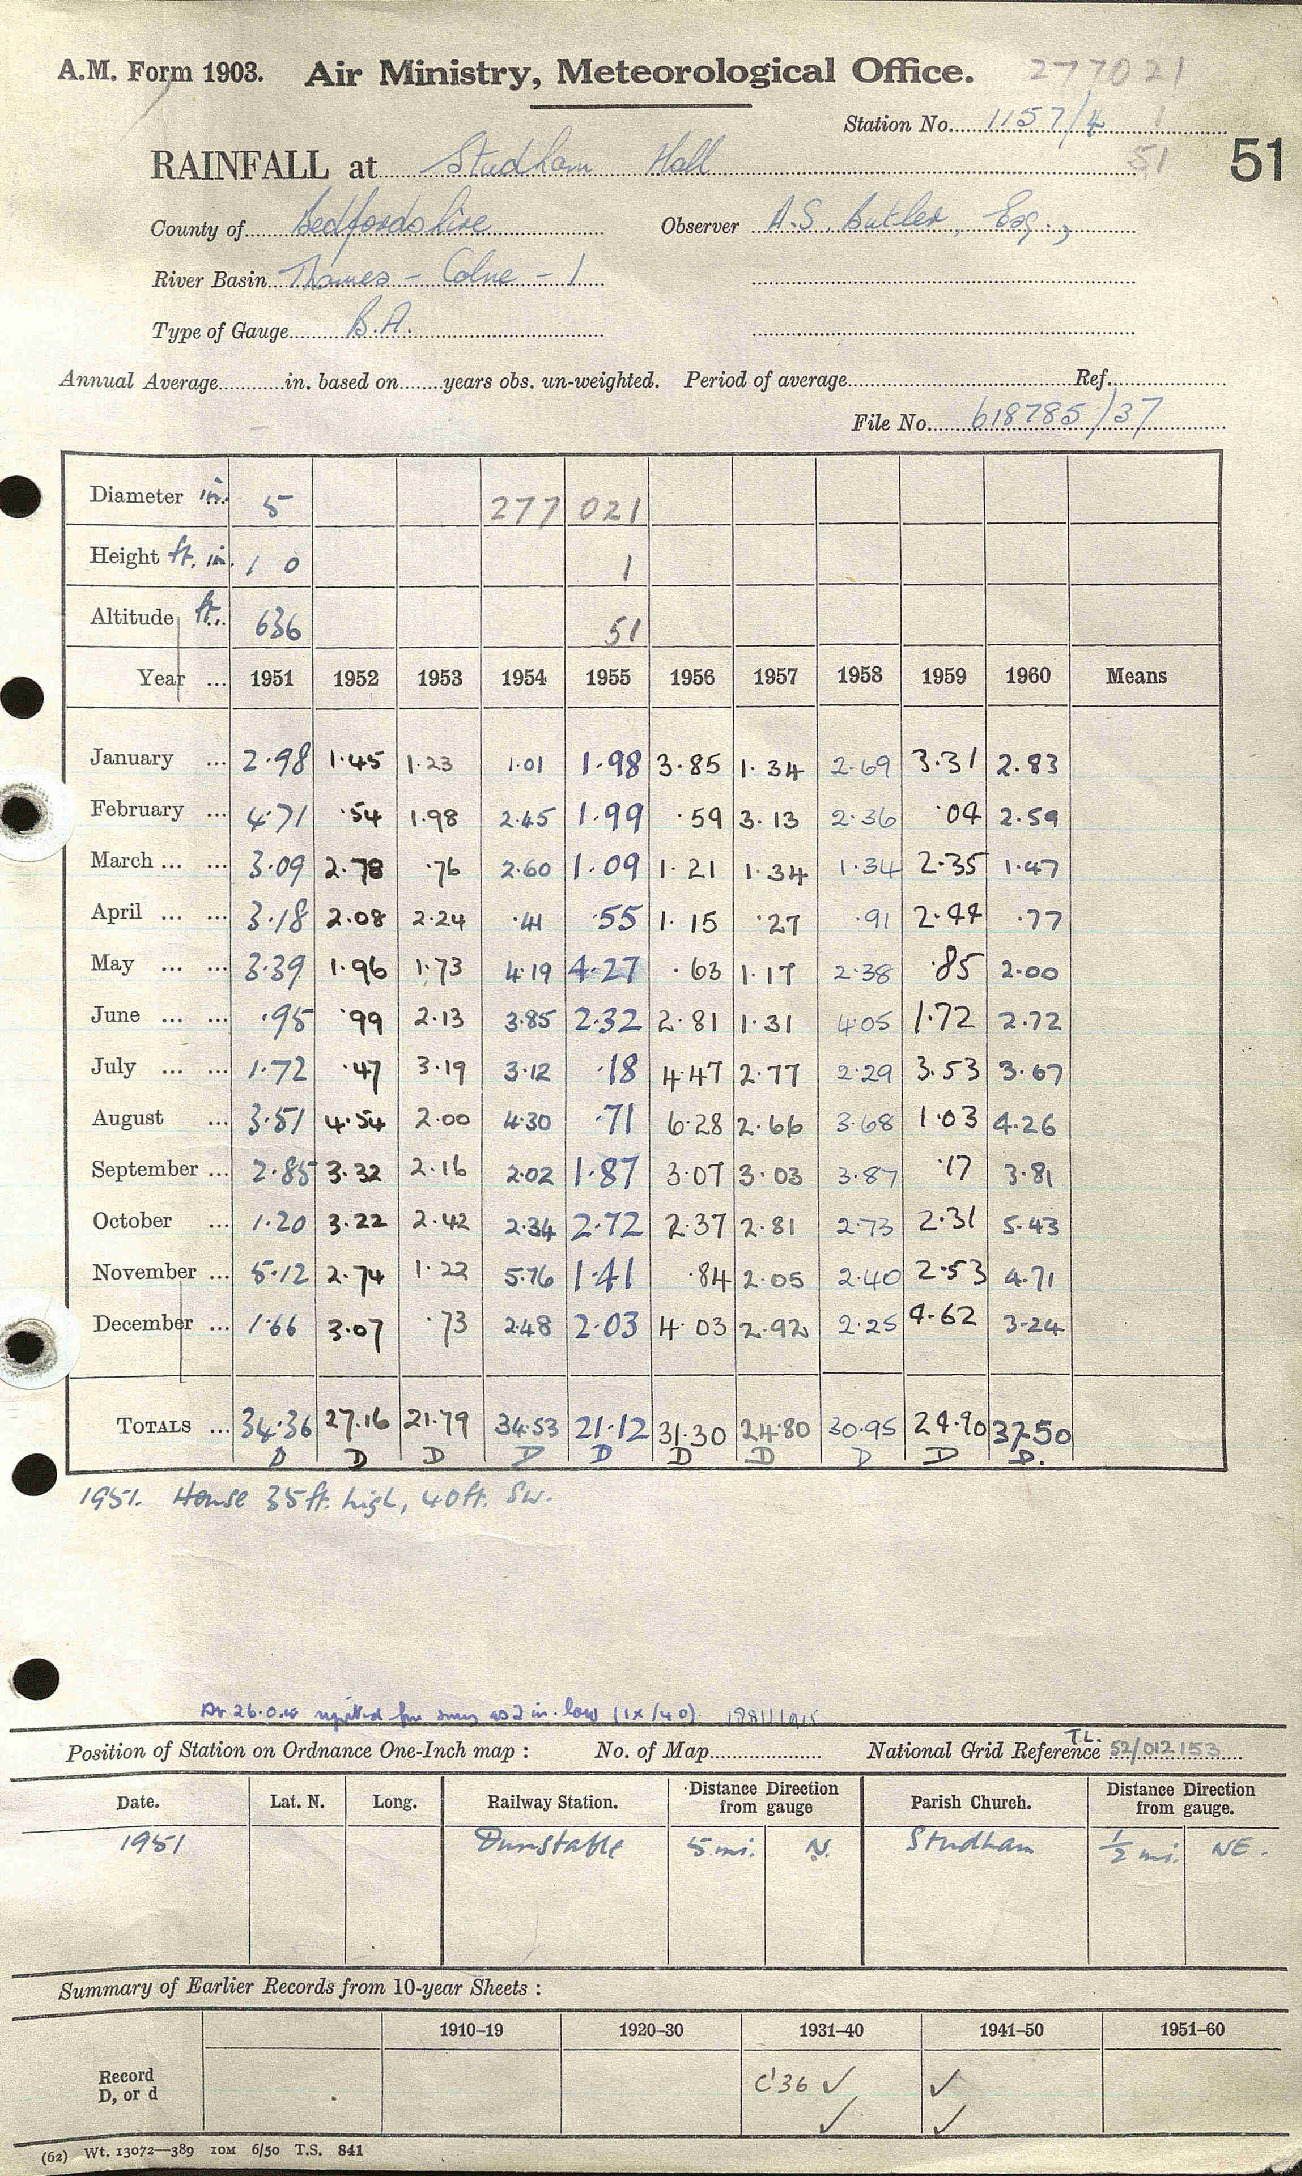 A.M. Form 1903. Air Ministry, Meteorological Office. 277021
Station No. 1157/4 1
RAINFALL at Studham Hall 51 51
County of Bedfordshire Observer A.S. Butler, Esq.,
River Basin Thames - Colne - 1
Type of Gauge B.A.
Annual Average in. based on years obs. un-weighted. Period of average Ref.
File No. 618785/37
Diameter in. 5 277 021
Height ft. in. 1 0 1
Altitude ft. 636 51
Year ... 1951 1952 1953 1954 1955 1956 1957 1958 1959 1960 Means
January ... 2.98 1.45 1.23 1.01 1.98 3.85 1.34 2.69 3.31 2.83
February ... 4.71 .54 1.98 2.45 1.99 .59 3.13 2.36 .04 2.59
March ... ... 3.09 2.78 .76 2.60 1.09 1.21 1.34 1.34 2.35 1.47
April ... ... 3.18 2.08 2.24 .41 .55 1.15 .27 .91 2.44 .77
May ... ... 3.39 1.96 1.73 4.19 4.27 .63 1.17 2.38 .85 2.00
June ... ... .95 .99 2.13 3.85 2.32 2.81 1.31 4.05 1.72 2.72
July ... ... 1.72 .47 3.19 3.12 .18 4.47 2.77 2.29 3.53 3.67
August ... 3.51 4.54 2.00 4.30 .71 6.28 2.66 3.68 1.03 4.26
September ... 2.85 3.32 2.16 2.02 1.87 3.07 3.03 3.87 .17 3.81
October ... 1.20 3.22 2.42 2.34 2.72 2.37 2.81 2.73 2.31 5.43
November ... 5.12 2.74 1.22 5.76 1.41 .84 2.05 2.40 2.53 4.71
December ... 1.66 3.07 .73 2.48 2.03 4.03 2.92 2.25 4.62 3.24
TOTALS ... 34.36 27.16 21.79 34.53 21.12 31.30 24.80 30.95 24.90 37.50
D D D D D D D D D D.
1951. House 35ft. high, 40ft. SW.
in. low (IX/40)
Position of Station on Ordnance One-Inch map : No. of Map National Grid Reference T.L. 52/012153
Date. Lat. N. Long. Railway Station. Distance Direction from gauge Parish Church. Distance Direction from gauge.
1951 Dunstable 5 mi. N. Studham 1/2 mi. NE.
Summary of Earlier Records from 10-year Sheets :
1910-19 1920-30 1931-40 1941-50 1951-60
Record D, or d C'36 ✓ ✓
✓ ✓
(62) Wt. 13072—389 10M 6/50 T.S. 841